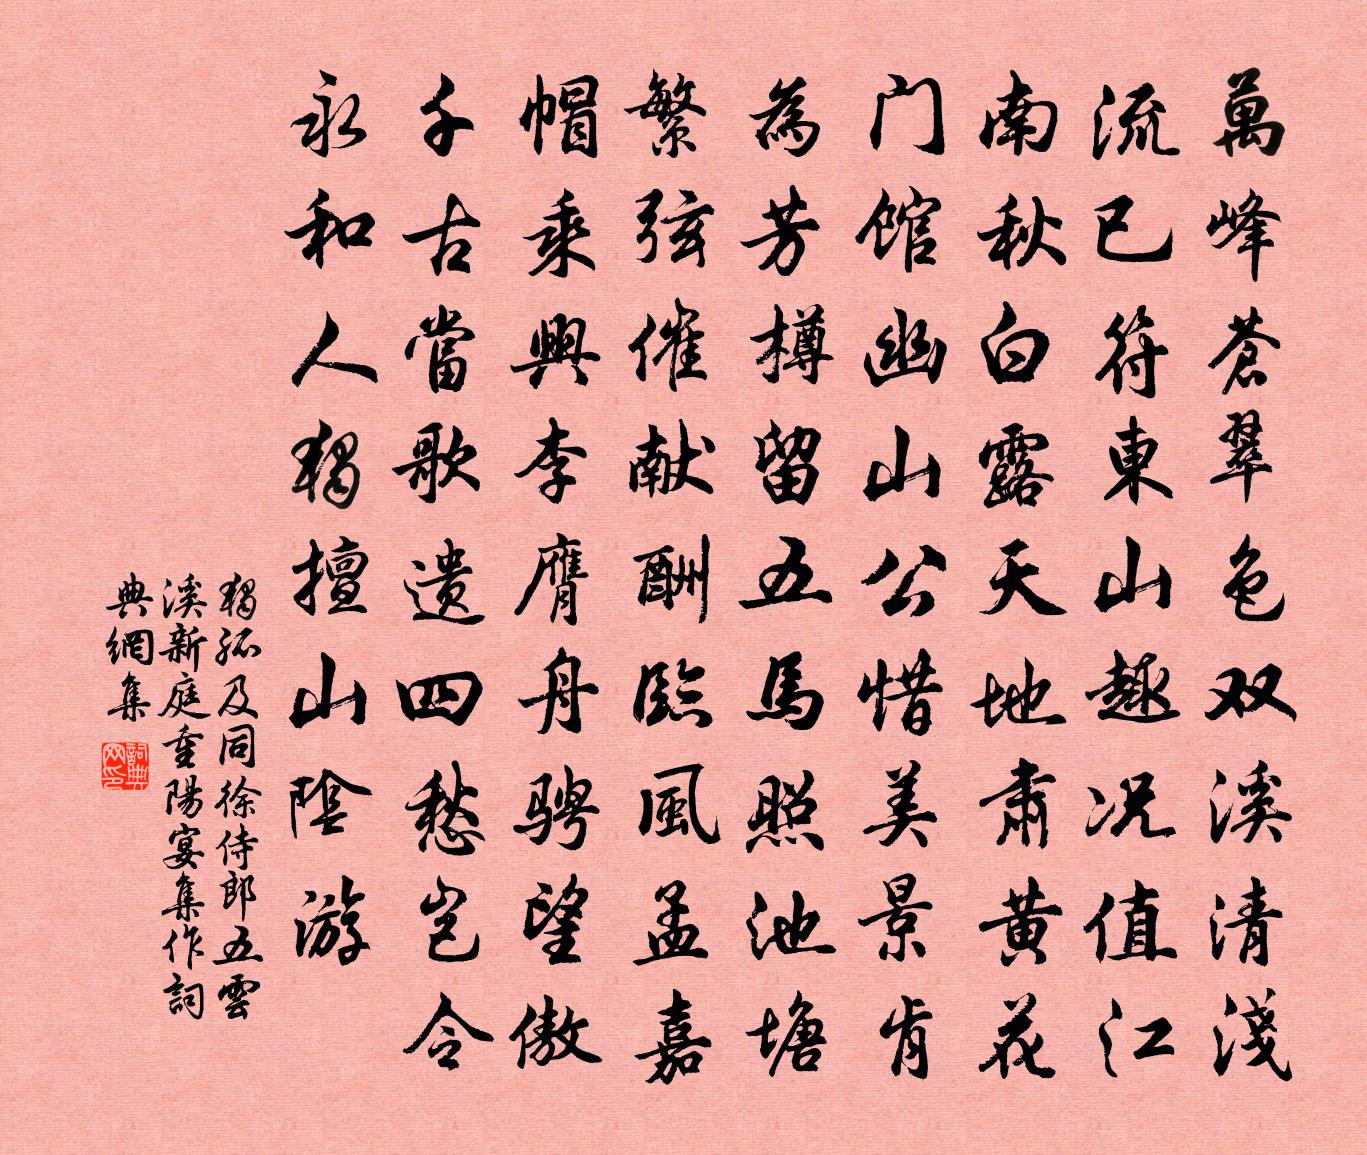 萬峰蒼翠色双溪清淺
流已符東山趣况值江
南秋白露天地肃黄花
门馆幽山公惜美景肯
為芳樽留五馬照池塘
繁弦催献酬臨風孟嘉
帽乘興李膺舟骋望傲
千古當歌遗四愁岂令
永和人獨擅山陰游
獨孤及同徐侍郎五雲
溪新庭重陽宴集作詞
典網集
詞典
网印